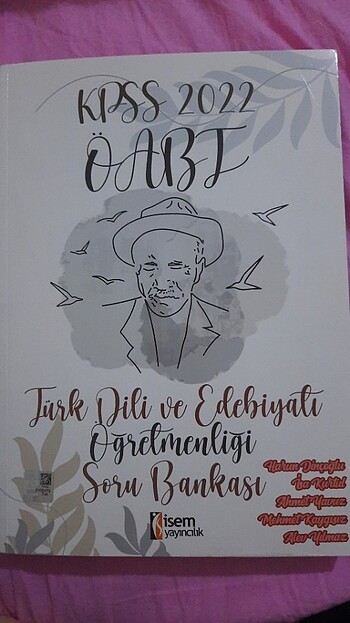 KPSS 2022
ÖABT
Türk Dili ve Edebiyatı
Öğretmenliği
Soru Bankası
Harun Dinçoğlu
İsa Kurtul
Ahmet Yavuz
Mehmet Kaygısız
Alev Yılmaz
isem
yayıncılık